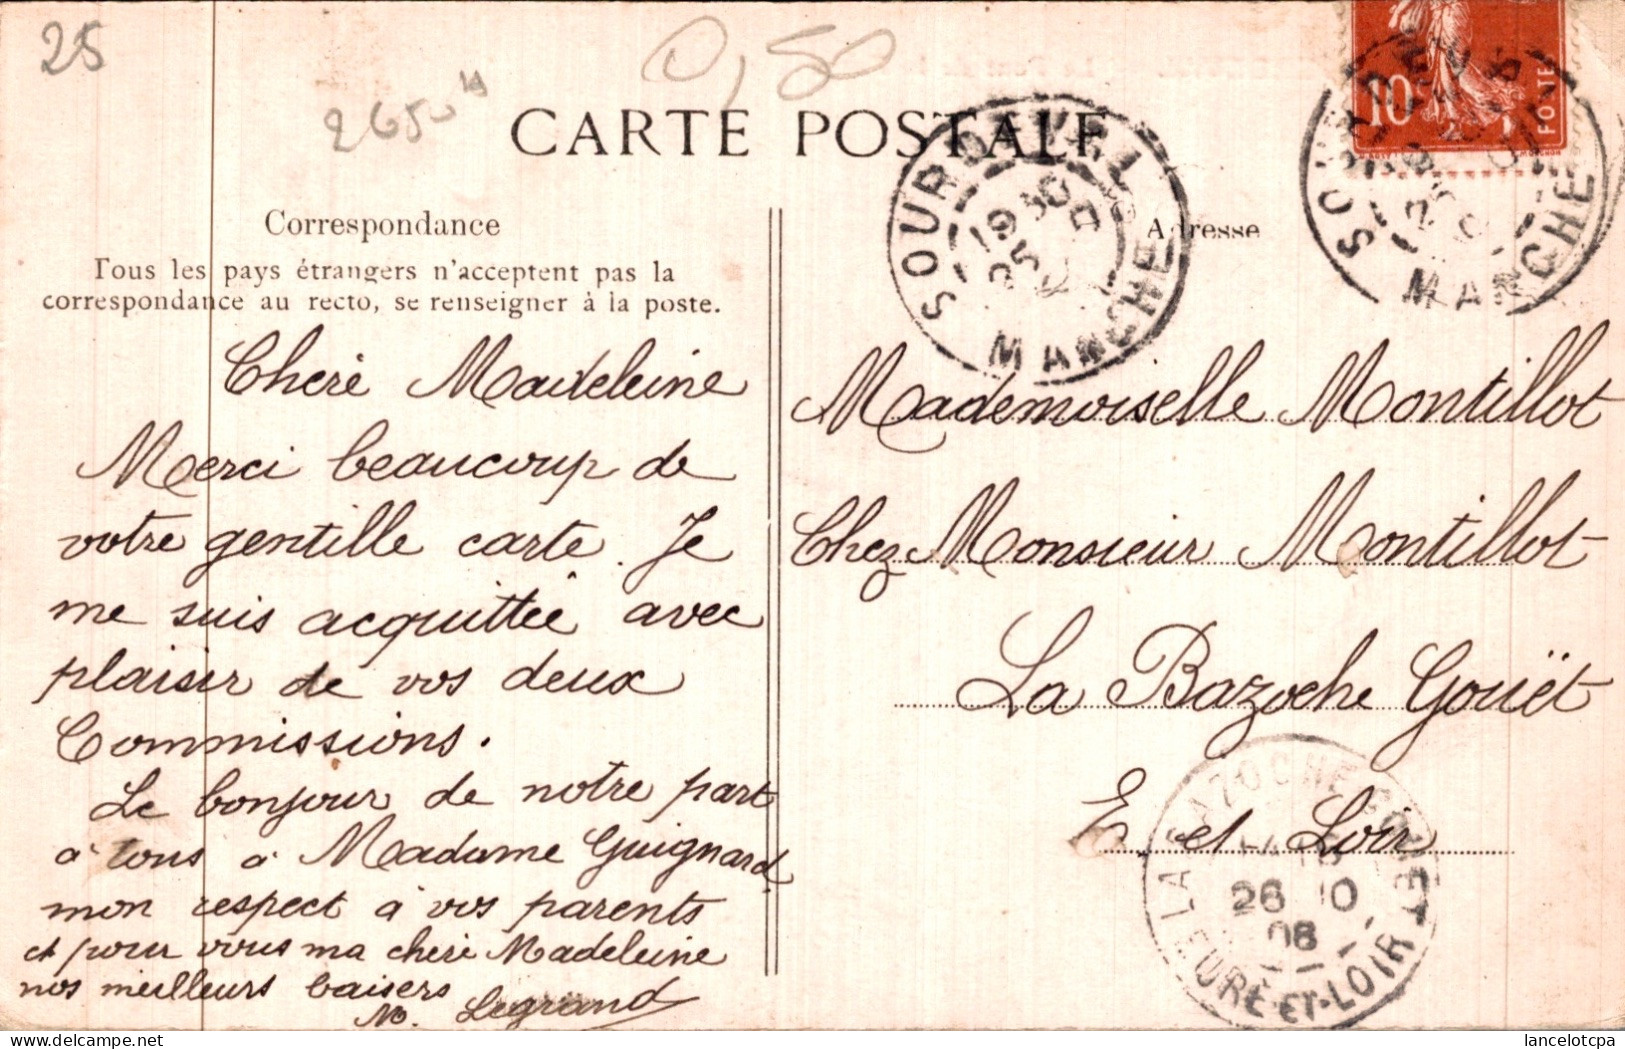 25
0,50
2650
CARTE POSTALE
Correspondance
Adresse
Tous les pays étrangers n'acceptent pas la
correspondance au recto, se renseigner à la poste.
Cheré Madeleine
Merci beaucoup de
votre gentille carte. Je
me suis acquittée avec
plaisir de vos deux
Commissions.
Le bonjour de notre part
à tous à Madame Guignard
mon respect à vos parents
et pour vous ma cheré Madeleine
nos meilleurs baisers
M. Legrand
Mademoiselle Montillot
Chez Monsieur Montillot
La Bazoche Gouët
E. et Loir
10
POSTE
SOURDEVAL
MANCHE
SOURDEVAL
MANCHE
LA BAZOCHE GOUET
26 10
08
EURE-ET-LOIR
lancelotcpa